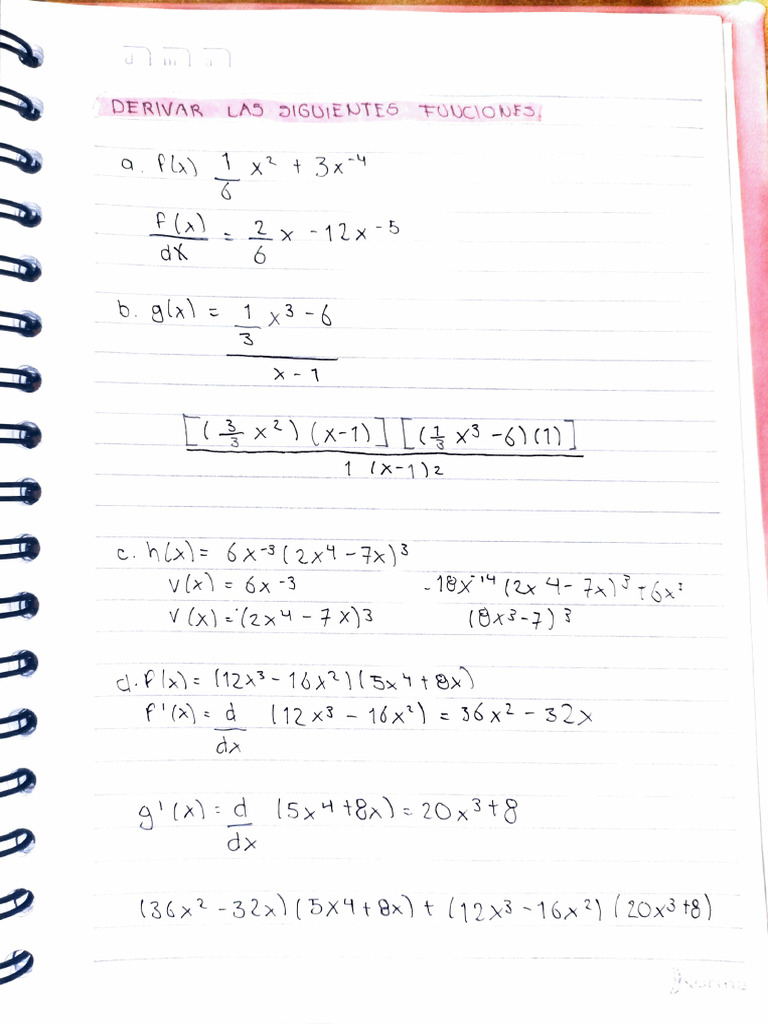 DERIVAR LAS SIGUIENTES FUUCIONES.
a. f(x) 1/6 x² + 3x⁻⁴
f(x)/dx = 2/6 x - 12x⁻⁵
b. g(x) = 1/3 x³ - 6
x - 1
[(3/3 x²) (x-1)] [(1/3 x³ - 6)(1)]
1 (x-1)2
c. h(x) = 6x⁻³(2x⁴ - 7x)³
v(x) = 6x⁻³ -18x⁻¹⁴(2x4 - 7x)³ + 6x³
v(x) = (2x⁴ - 7x)3 (8x³ - 7)3
d. f(x) = (12x³ - 16x²)(5x⁴ + 8x)
f'(x) = d/dx (12x³ - 16x²) = 36x² - 32x
g'(x) = d/dx (5x⁴ + 8x) = 20x³ + 8
(36x² - 32x)(5x4 + 8x) + (12x³ - 16x²)(20x³ + 8)